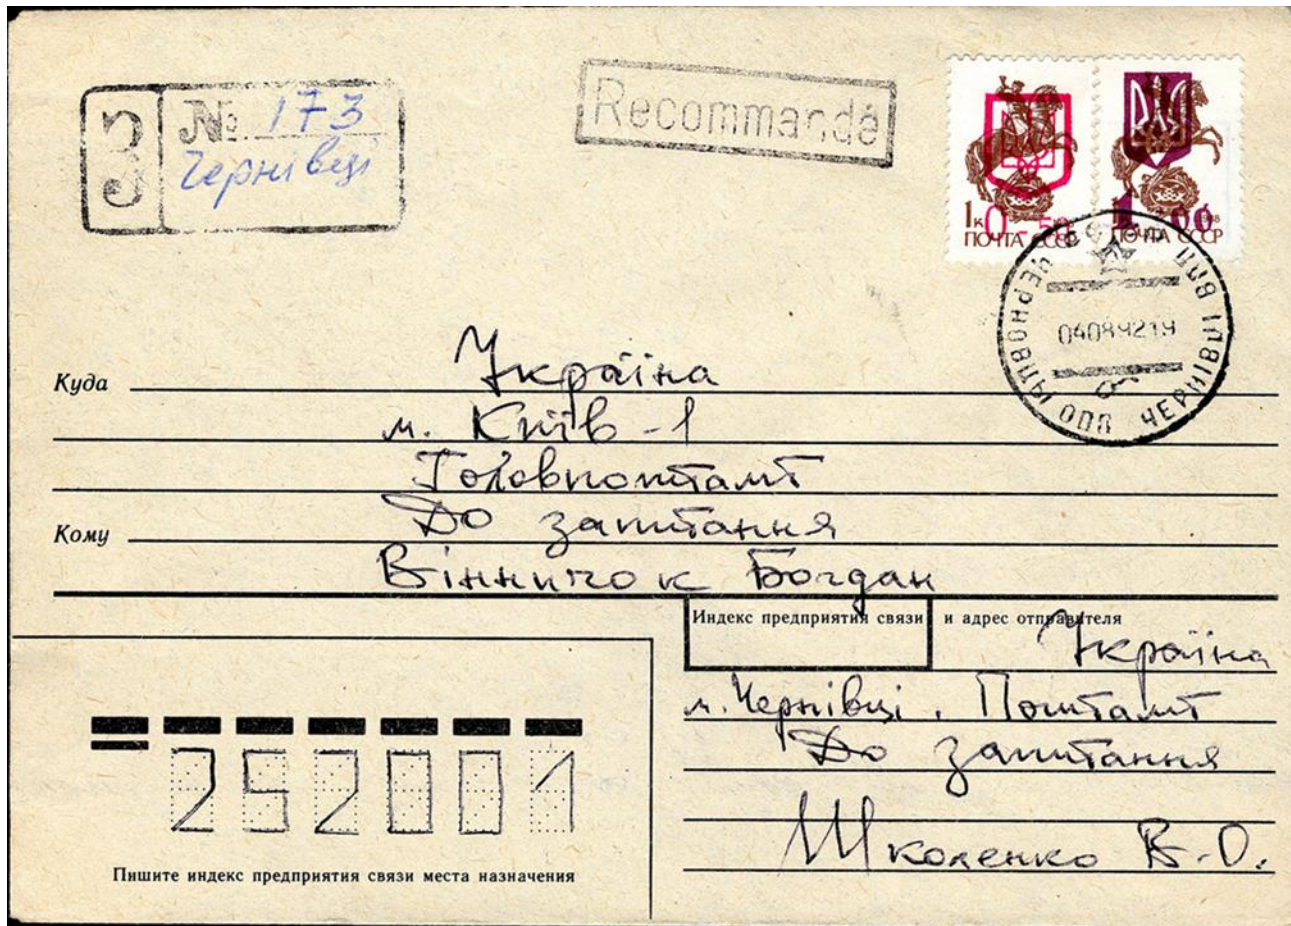 З
№ 173
Чернівці
Recommandé
1к
0-50
ПОЧТА СССР
1-00
ПОЧТА СССР
ЧЕРНОВЦЫ ОПП ЧЕРНІВЦІ ВПП
04089219
Куда
Україна
м. Київ-1
Головпоштамт
Кому
До запитання
Вінничок Богдан
Индекс предприятия связи и адрес отправителя
Україна
м. Чернівці, Поштамт
До запитання
Школенко В.О.
252001
Пишите индекс предприятия связи места назначения